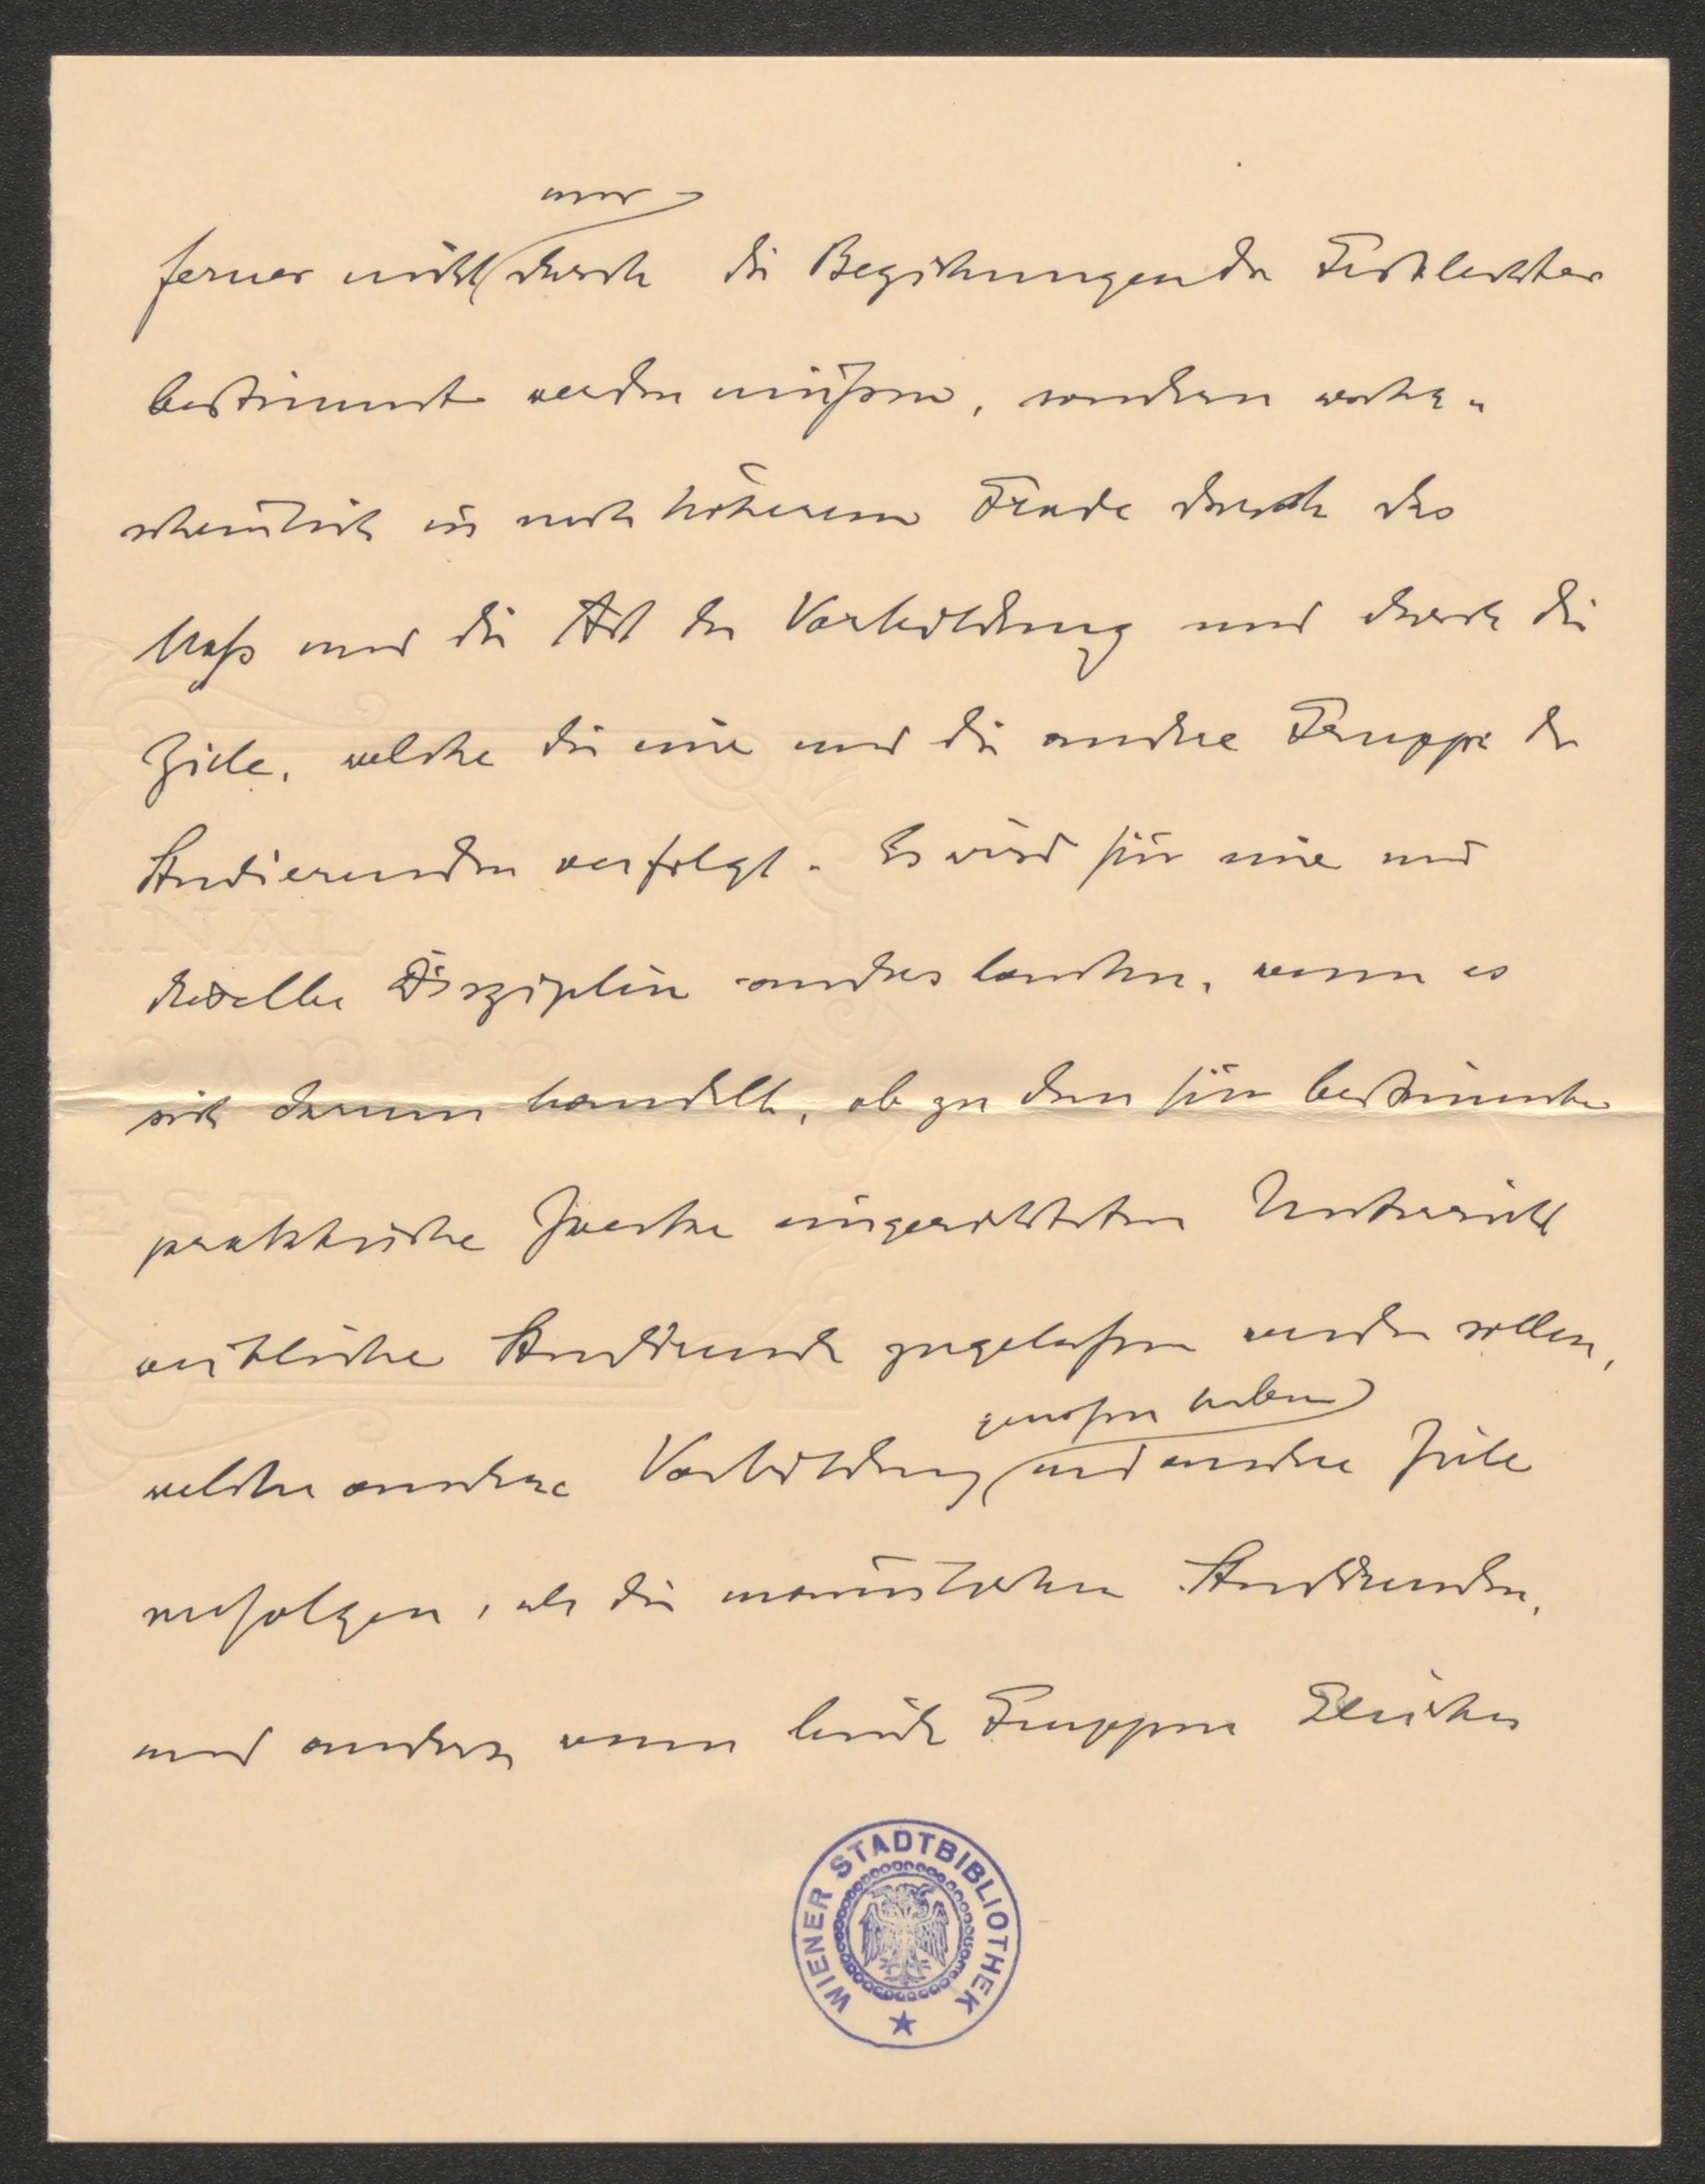 nur
ferner nicht durch die Beziehungen der Geschlechter
bestimmt werden müssen, sondern wahr-
scheinlich in noch höherem Grade durch das
Maß und die Art der Vorbildung und durch die
Ziele, welche die eine und die andere Gruppe der
Studierenden verfolgt. Es wird für eine und
dieselbe Disziplin anders lauten, wenn es
sich darum handelt, ob zu dem für bestimmte
praktische Zwecke eingerichteten Unterricht
weibliche Studirende zugelassen werden sollen,
genossen haben
welche andere Vorbildung und andere Ziele
verfolgen, als die männlichen Studirenden,
und anders, wenn beide Gruppen Gleiches
WIENER STADTBIBLIOTHEK